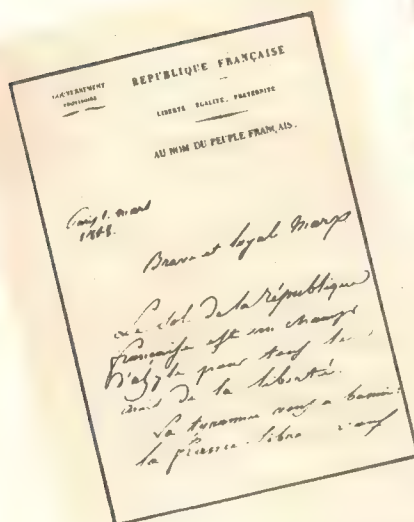 GOUVERNEMENT
PROVISOIRE
RÉPUBLIQUE FRANÇAISE
LIBERTÉ ÉGALITÉ, FRATERNITÉ
AU NOM DU PEUPLE FRANÇAIS.
Paris 1. mars
1848.
Brave et loyal Marx
Le sol de la république
française est un champ
d'asyle pour tous les
amis de la liberté.
La tyrannie vous a banni
la france libre vous